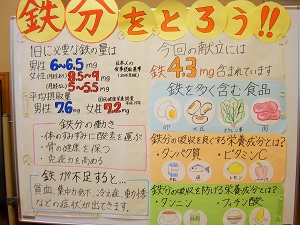 鉄分をとろう!!
1日に必要な鉄の量は
男性 6~6.5mg
女性(月経あり) 8.5~9mg
(月経なし) 5~5.5mg
平均摂取量
男性 7.6mg 女性 7.2mg
今回の献立には
鉄 4.3mg含まれています
鉄を多く含む食品
卵
大豆
肉
鉄分の働き
・体のすみずみに酸素を運ぶ
・骨の健康を保つ
・免疫力を高める
鉄が不足すると…
貧血、集中力低下、冷え症、動悸
などの症状が出てきます。
鉄分の吸収を良くする栄養成分とは?
・タンパク質
・ビタミンC
鉄分の吸収を妨げる栄養成分とは?
・タンニン
・フィチン酸